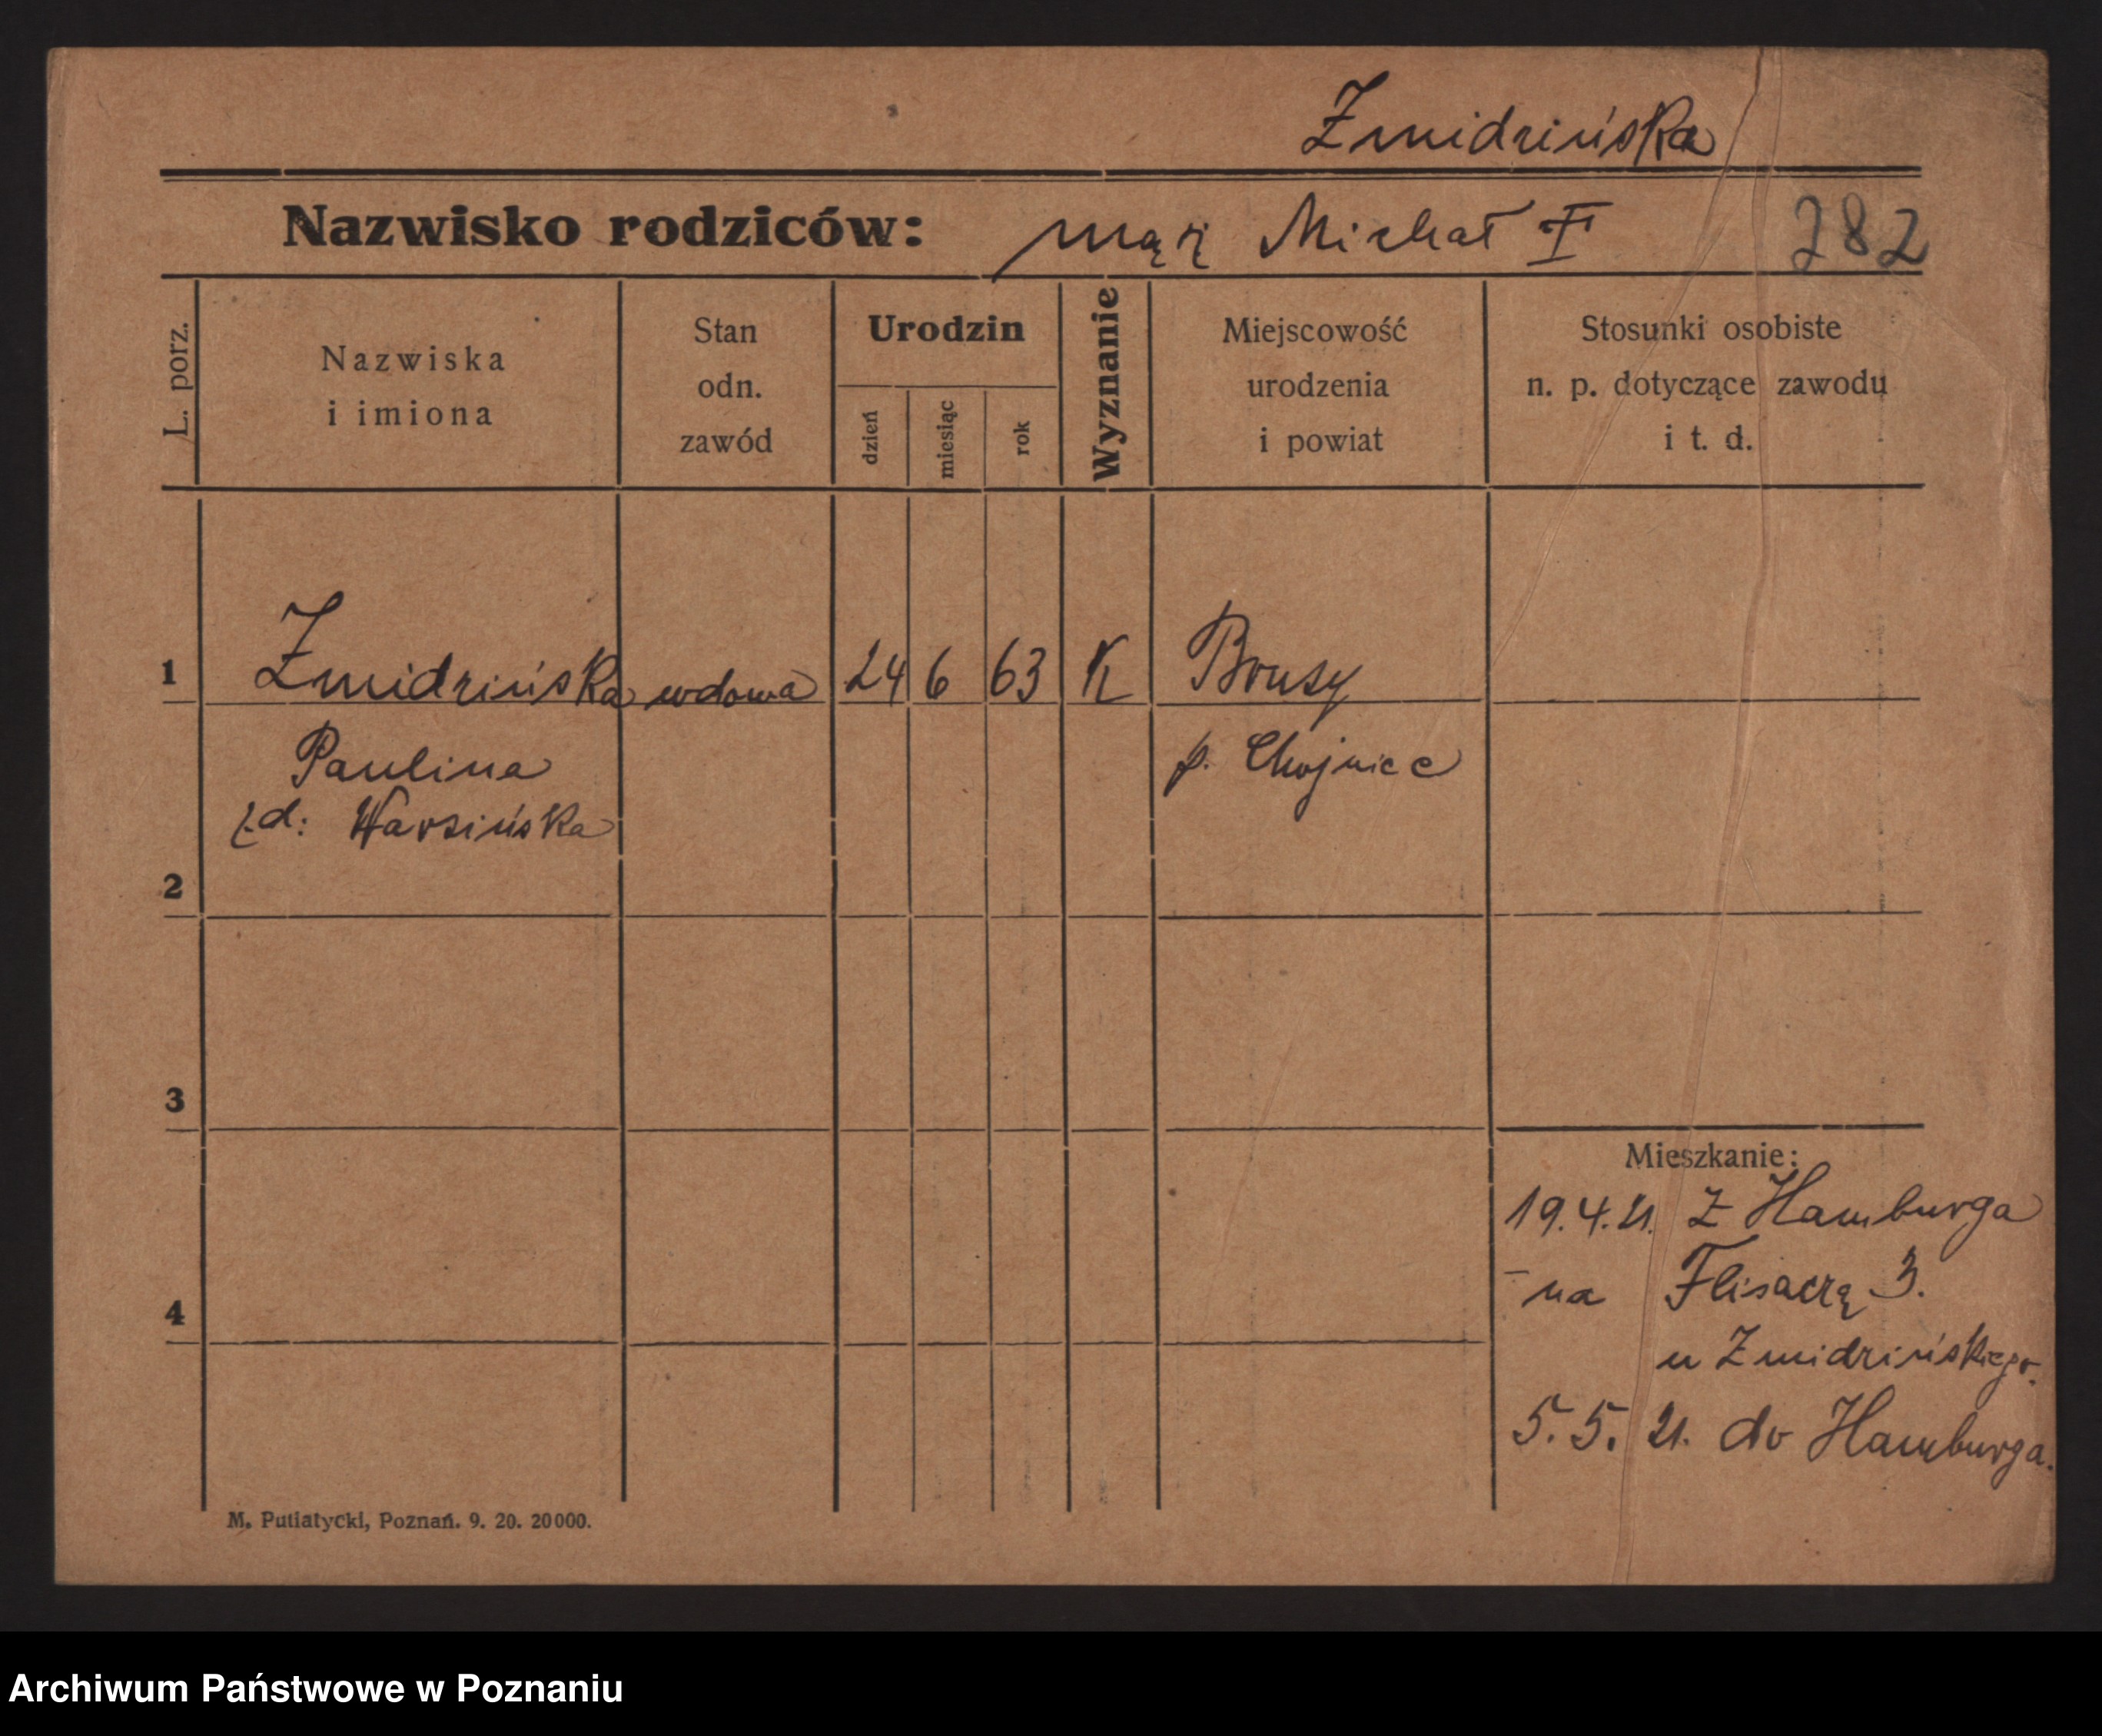 Żmidzińska
Nazwisko rodziców: mąż Michał
782
L. porz.
Nazwiska
i imiona
Stan
odn.
zawód
Urodzin
dzień
miesiąc
rok
Wyznanie
Miejscowość
urodzenia
i powiat
Stosunki osobiste
n. p. dotyczące zawodu
i t. d.
1 Żmidzińska wdowa 24 6 63 K Brusy
Paulina p. Chojnice
zd: Warsińska
2
3
4
Mieszkanie:
19.4.21. z Hamburga
na Flisaczą 3.
u Żmidzińskiego.
5.5.21. do Hamburga.
M. Putiatycki, Poznań. 9. 20. 20000.
Archiwum Państwowe w Poznaniu